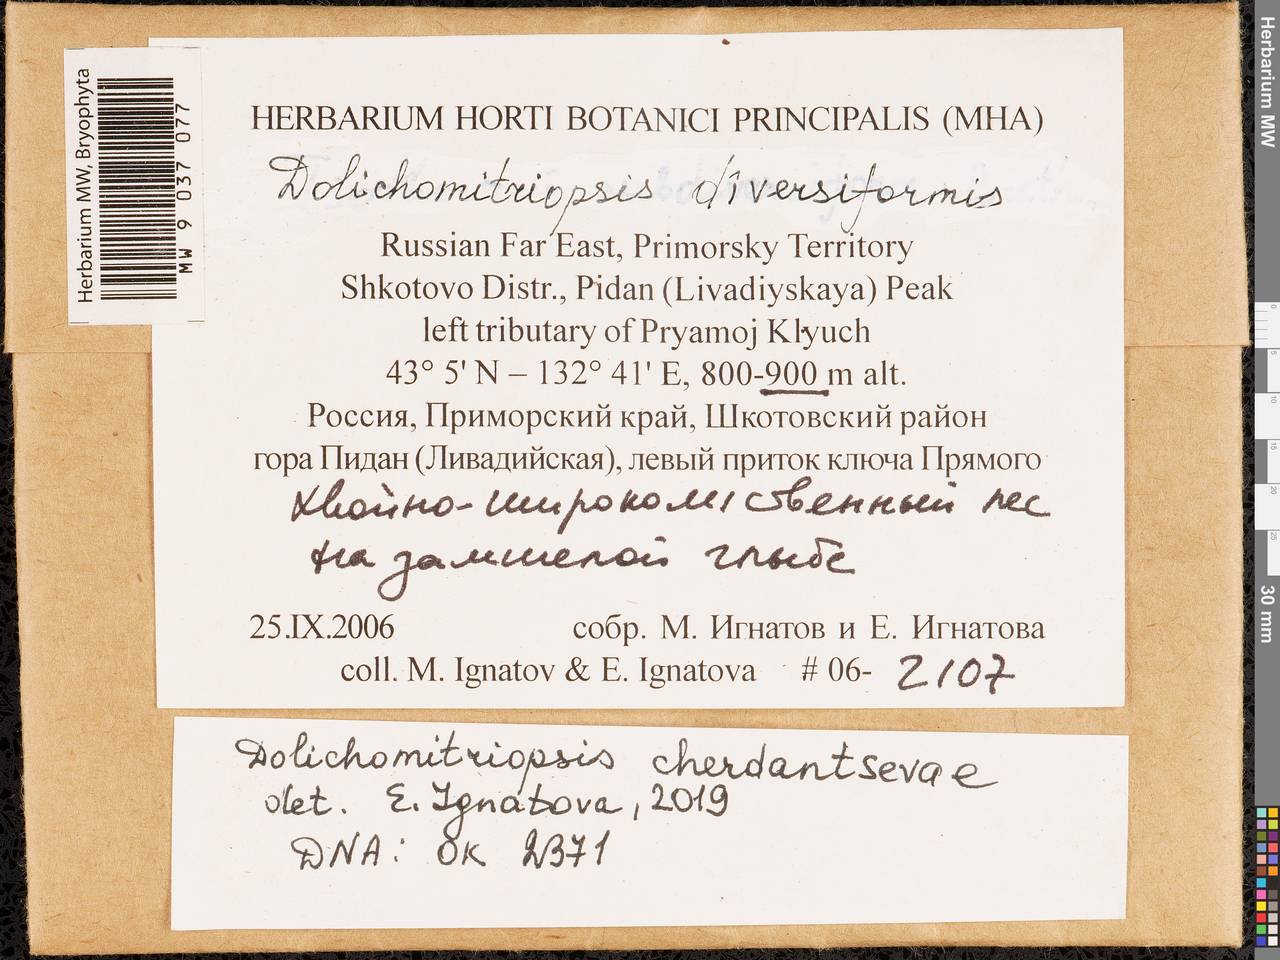 Herbarium MW, Bryophyta
MW 9 037 077
HERBARIUM HORTI BOTANICI PRINCIPALIS (MHA)
Dolichomitriopsis diversiformis
Russian Far East, Primorsky Territory
Shkotovo Distr., Pidan (Livadiyskaya) Peak
left tributary of Pryamoj Klyuch
43° 5' N – 132° 41' E, 800-900 m alt.
Россия, Приморский край, Шкотовский район
гора Пидан (Ливадийская), левый приток ключа Прямого
хвойно-широколиственный лес
на замшелой глыбе
25.IX.2006 собр. М. Игнатов и Е. Игнатова
coll. M. Ignatov & E. Ignatova # 06- 2107
Dolichomitriopsis cherdantsevae
det. E. Ignatova, 2019
DNA: OK 2371
Herbarium MW
0
5
10
15
20
25
30 mm